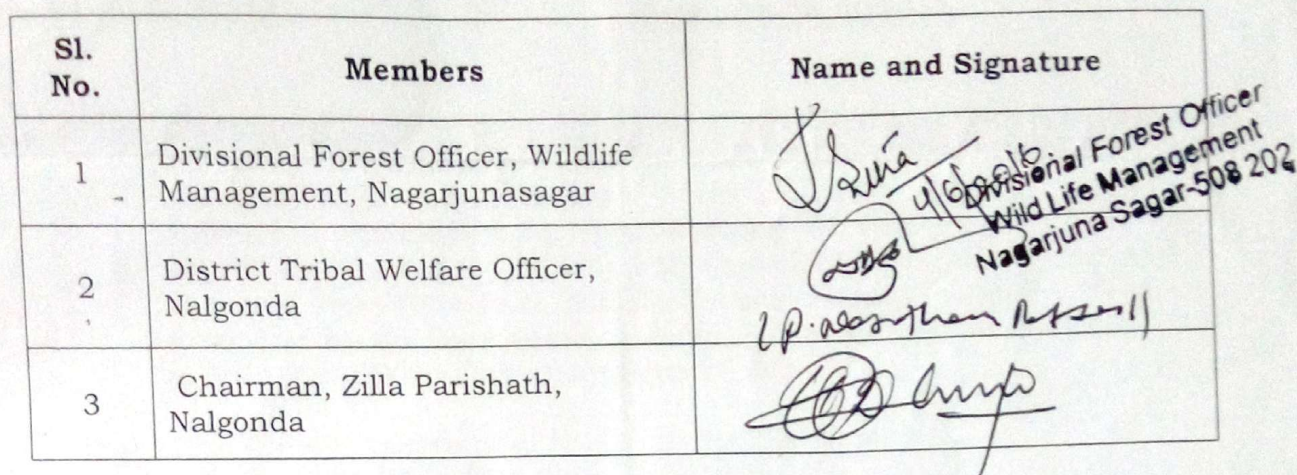 Sl. No. Members Name and Signature
1 Divisional Forest Officer, Wildlife
Management, Nagarjunasagar
Divisional Forest Officer
Wild Life Management
Nagarjuna Sagar-508 202
2 District Tribal Welfare Officer,
Nalgonda
3 Chairman, Zilla Parishath,
Nalgonda